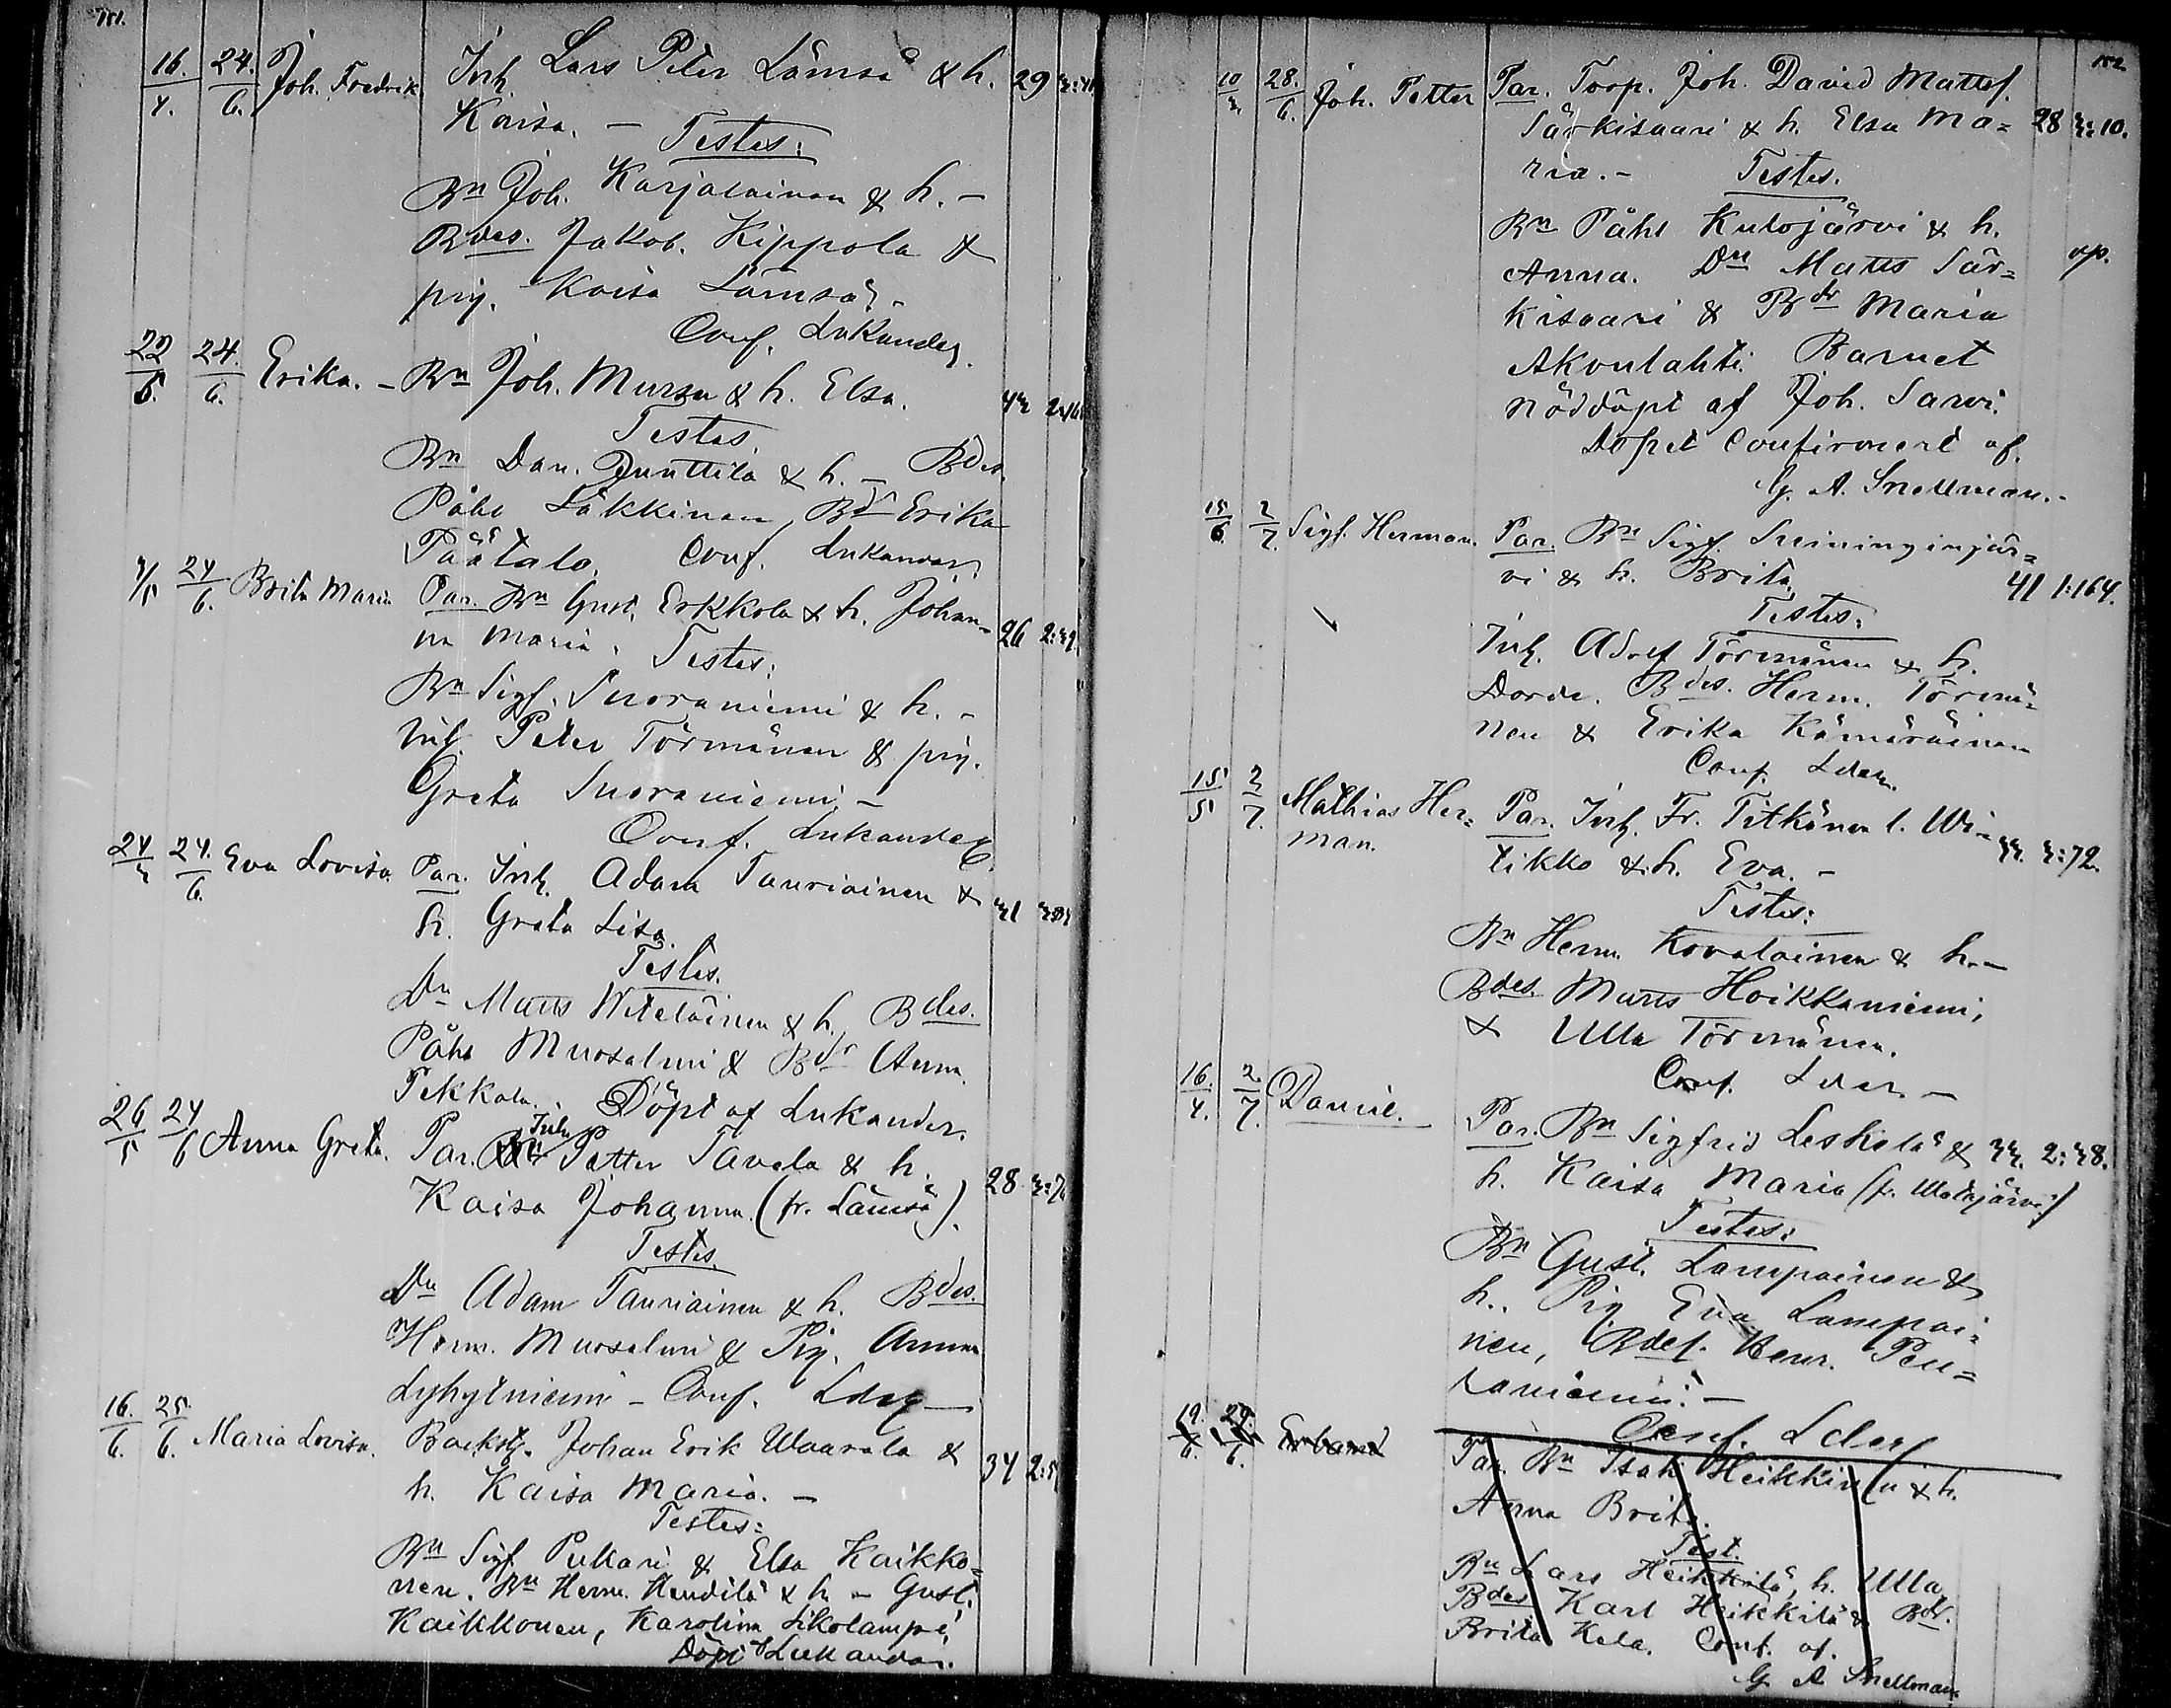 151.
16./4. 24./6. Joh. Fredrik Inh. Lars Peter Lämsä & h. 29
Kaisa. – Testes:
Bn Joh. Karjalainen & h. –
Bdes. Jakob. Kippola &
pig. Kaisa Lämsä. –
Conf. Lukander.
22/5. 24./6. Erika. – Bn Joh. Mursu & h. Elsa.
Testes
Bn Dan. Junttila & h. – Bdes.
Påhl Läkkinen, Bdr Erika
Päätalo. Conf. Lukander.
24/6. Brita Maria Par. Bn Gust. Erkkola & h. Johan- 26
na Maria. Testes:
Bn Sigf. Suoraniemi & h. –
Inh. Peter Törmänen & pig.
Greta Suoraniemi, –
Conf. Lukander.
24. 24./6. Eva Lovisa. Par. Inh. Adam Tauriainen &
h. Greta Lisa.
Testes.
Dn Matts Witeläinen & h. Bdes.
Påhl Mursalmi & Bdr Anna
Pekkala. Döpt af Lukander.
26/5 24/6 Anna Greta. Par. Inh. Petter Tavela & h. 28
Kaisa Johanna. (fr. Lämsä).
Testes.
Dn Adam Tauriainen & h. Bdes.
Herm. Mursalmi & Pig. Anna
Lyhytniemi – Conf. Lder –
16./6. 25./6. Maria Lovisa. Backstg. Johan Erik Waarala & 34
h. Kaisa Maria. –
Testes:
Bn Sigf. Pukari & Elsa Kaikko-
nen. Bn Herm. Hendilä & h. – Gust.
Kaikkonen, Karolina Sikolampi,
Döpt af Lukander.
152
10 28./6. Joh. Petter Par. Torp. Joh. David Mattsf.
Särkisaari & h. Elsa Ma= 28 10.
ria. – Testes.
Bn Påhl Kulojärvi & h.
Anna. Dn Matts Sär=
kisaari & Bdr Maria
Akonlahti. Barnet
nöddöpt af Joh. Sarvi.
Dopet Confirmerd af.
G. A. Snellman. –
15/6. 2/7. Sigf. Herman. Par. Bn Sigf. Leininginjär=
vi & h. Brita. 41 1:164.
Testes:
Inh. Adolf Törmänen & h.
Dorde. Bdes. Herm. Törmä=
nen & Erika Kämäräinen
Conf. Lder.
15/5 2/7. Mathias Her= Par. Inh. Fr. Pitkänen l. Wi-
man. tikko & h. Eva. –
Testes:
Bn Herm. Kovalainen & h. –
Bdes. Matts Hoikkaniemi,
& Ulla Törmänen.
Conf. Lder –
16./4. 2./7. Daniel. Par. Bn Sigfrid Leskelä &
h. Kaisa Maria (fr. Watajärvi)
Testes:
Bn Gust. Lampainen &
h. Pig. Eva Lampai=
nen, Bdes. Henr. Pen=
taniemi. –
Conf. Lder
19./6. 29./6. Erland Par. Bn Isak Heikkinen & h.
Anna Brita.
Test.
Bn Lars Heikkilä, h. Ulla
Bdes Karl Heikkilä & Bdr.
Brita Kela. Conf. af.
G. A Snellman